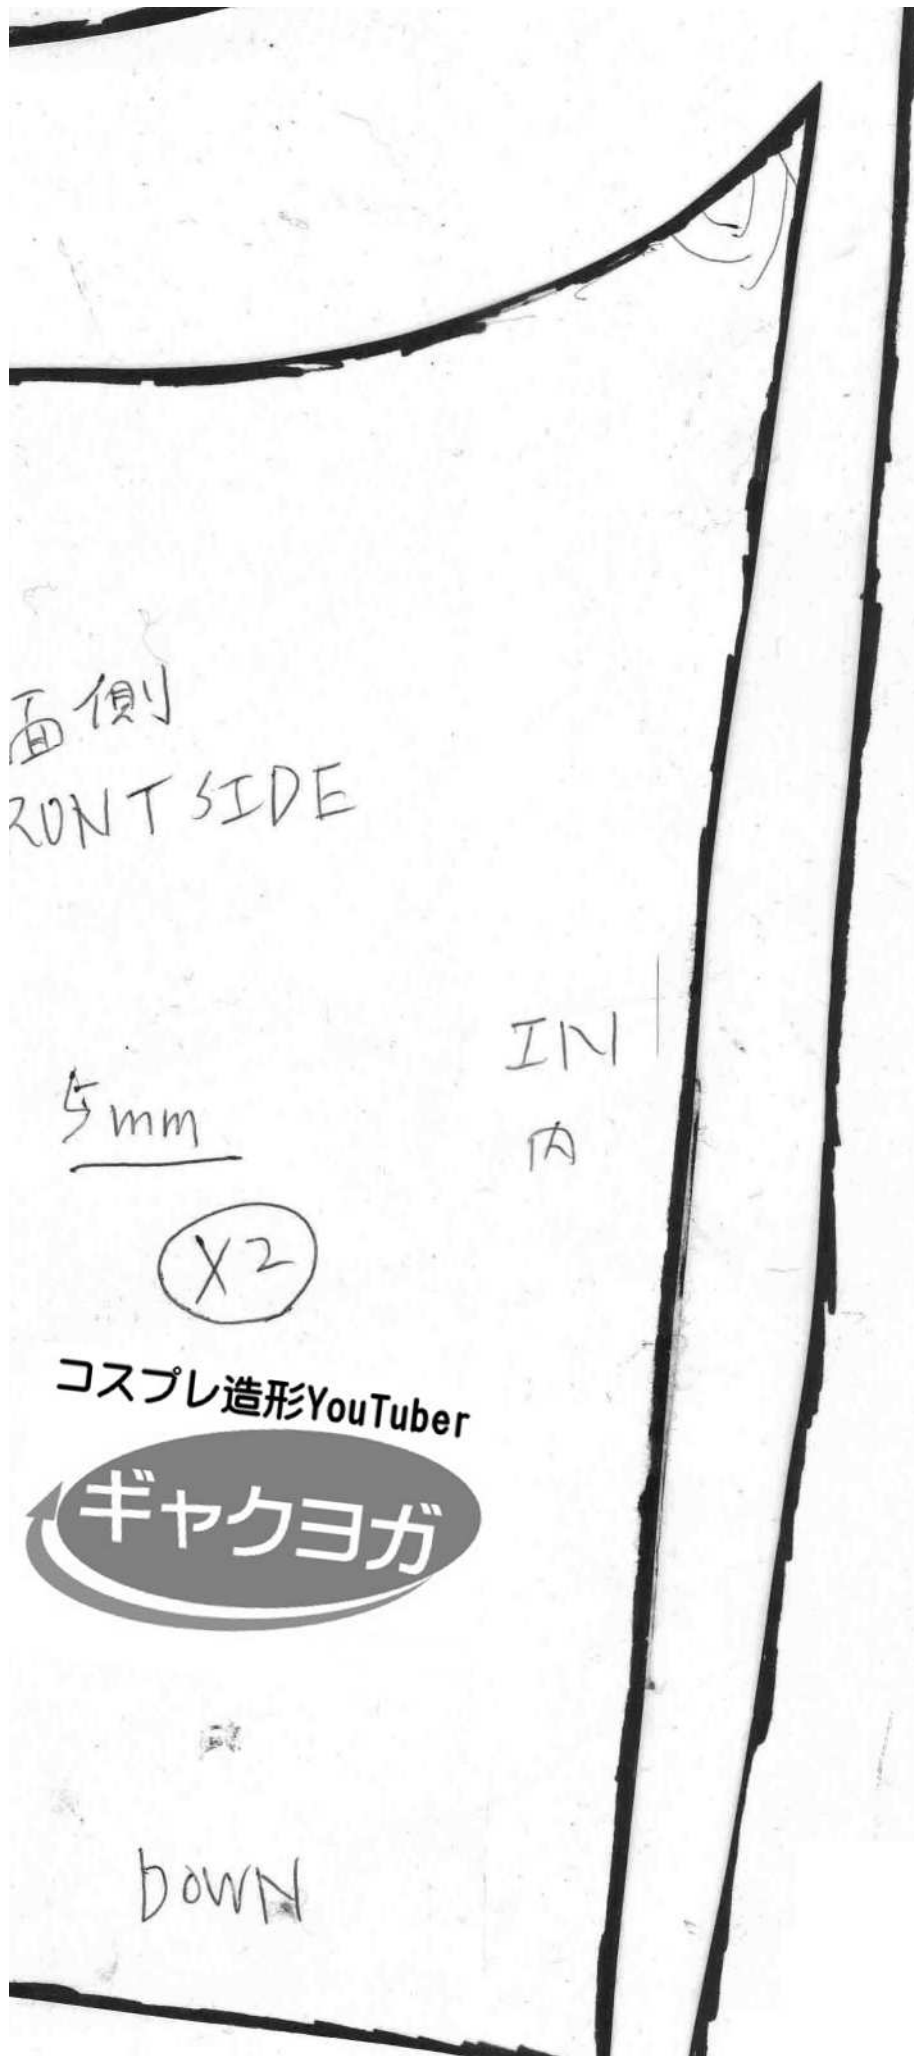 面側
RONT SIDE
IN
内
5mm
X2
コスプレ造形YouTuber
ギャクヨガ
DOWN